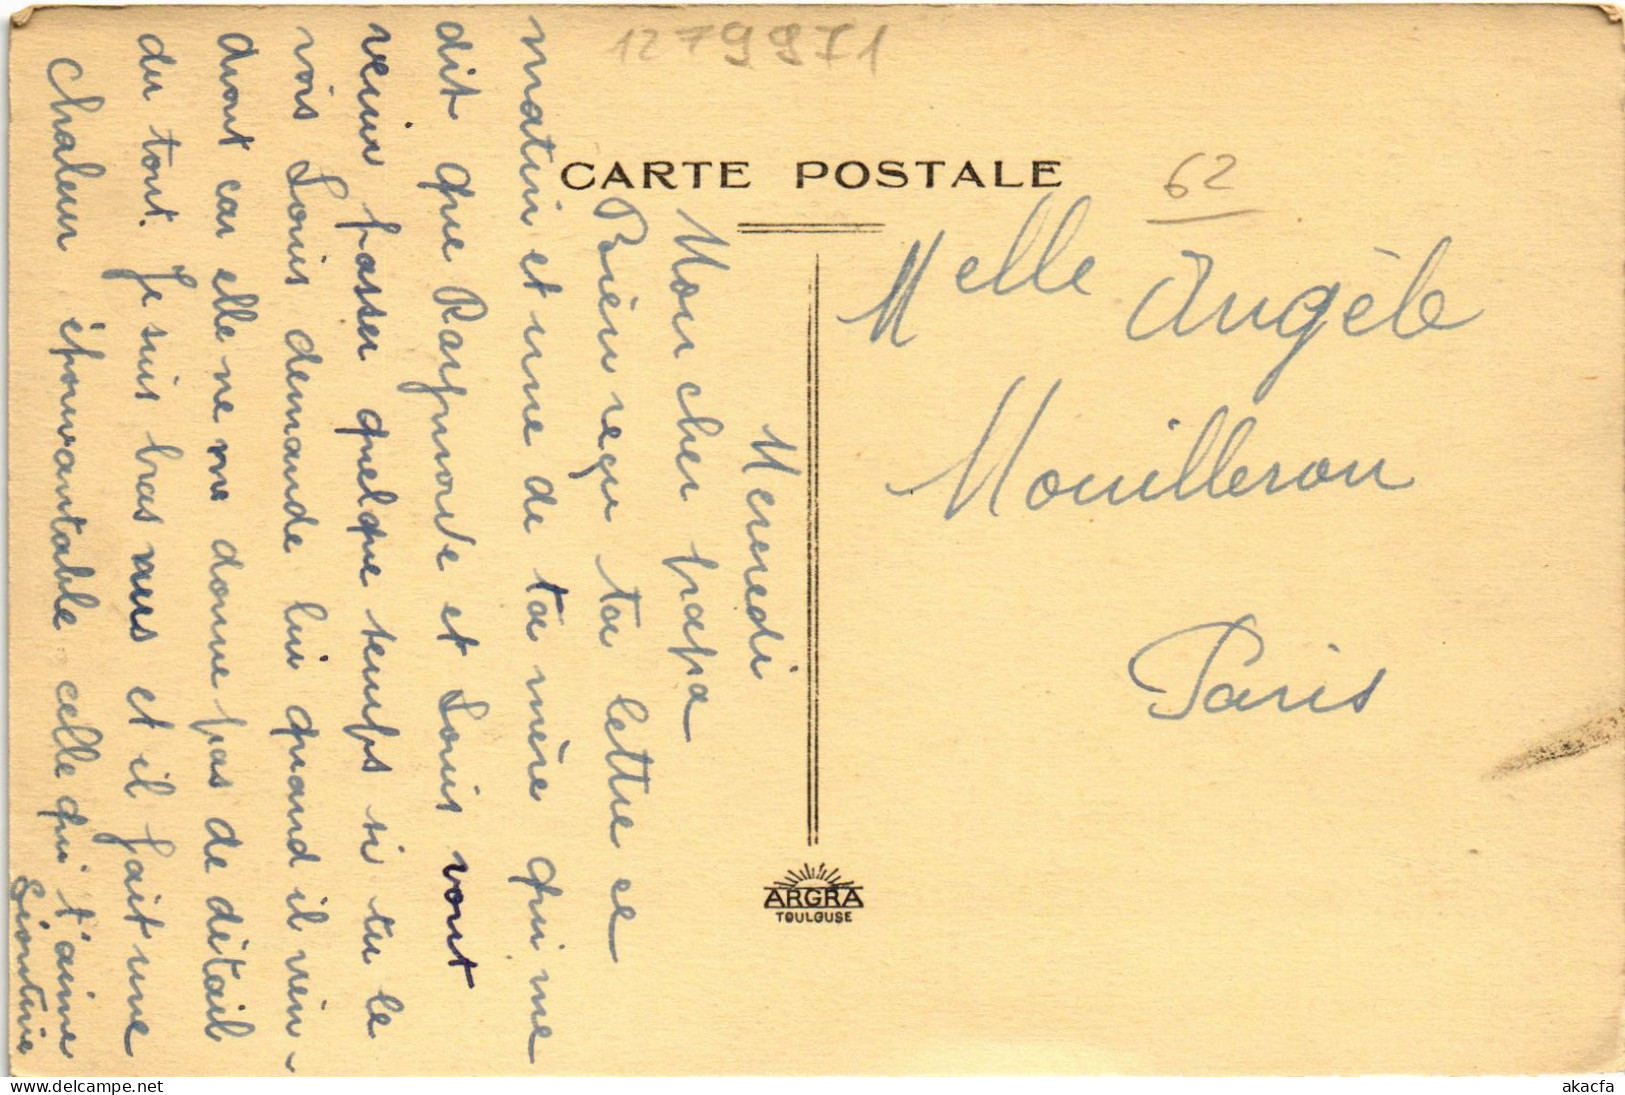 1279971
CARTE POSTALE
62
Mercredi
Mon cher papa
Bien reçu ta lettre ce
matin et une de ta mère qui me
dit que Raymonde et Louis vont
venir passer quelque temps si tu le
vois Louis demande lui quand il vien-
dront car elle ne me donne pas de détail
du tout. Je suis bras nus et il fait une
chaleur épouvantable celle qui t'aime
Léontine
Melle Angèle
Mouilleron
Paris
ARGRA
TOULOUSE
akacfa
www.delcampe.net